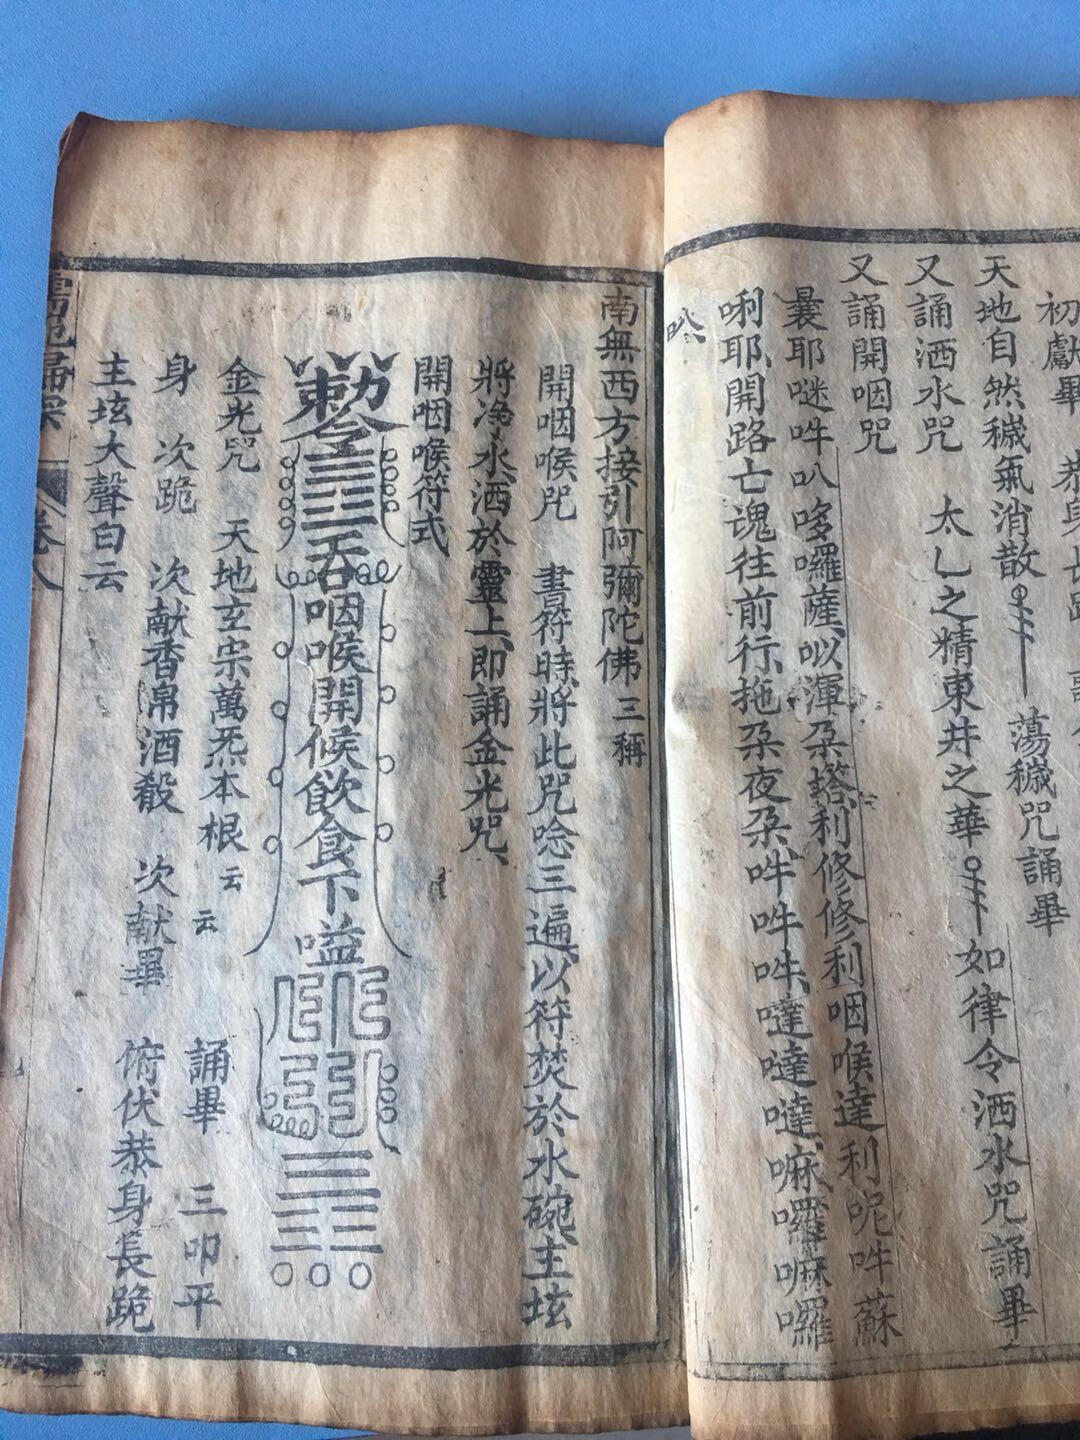 初獻畢 恭身長跪
天地自然穢氣消散 蕩穢咒誦畢
又誦洒水咒 太乚之精東井之華 如律令洒水咒誦畢
又誦開咽咒
曩耶㖷吽叭哆囉薩以渾朶塔利修修利咽喉達利呢吽蘇
唎耶開路亡魂往前行拖朶夜朶吽吽吽噠噠噠嘛囉嘛囉
南無西方接引阿彌陀佛三稱
開咽喉咒 書符時將此咒唸三遍以符焚於水碗主坛
將净水洒於靈上即誦金光咒
開咽喉符式
勅令 吞咽喉開候飲食下嗌
金光咒 天地玄宗萬炁本根云云 誦畢 三叩平
身 次跪 次献香帛酒殽 次献畢 俯伏恭身長跪
主坛大聲白云
卷八